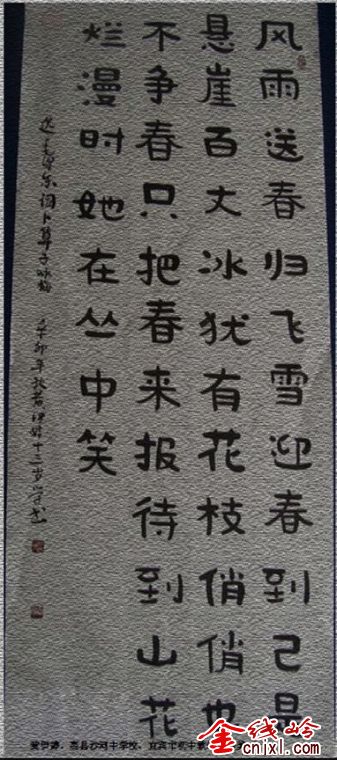 风雨送春归飞雪迎春到已是
悬崖百丈冰犹有花枝俏俏也
不争春只把春来报待到山花
烂漫时她在丛中笑
选毛泽东词卜算子咏梅 辛卯年秋
高县沙河中学校
金线岭
cnjxl.com